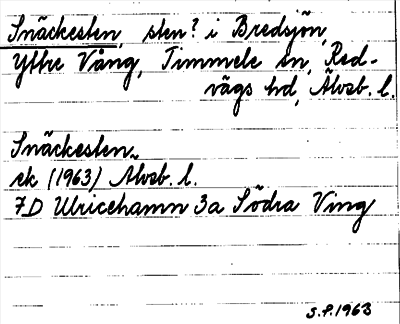 Snäckesten, sten? i Bredsjön,
Yttre Vång, Timmele sn, Red-
vägs hd, Älvsb. l.
Snäckesten
ek (1963) Älvsb. l.
7D Ulricehamn 3a Södra Ving
S.P. 1963